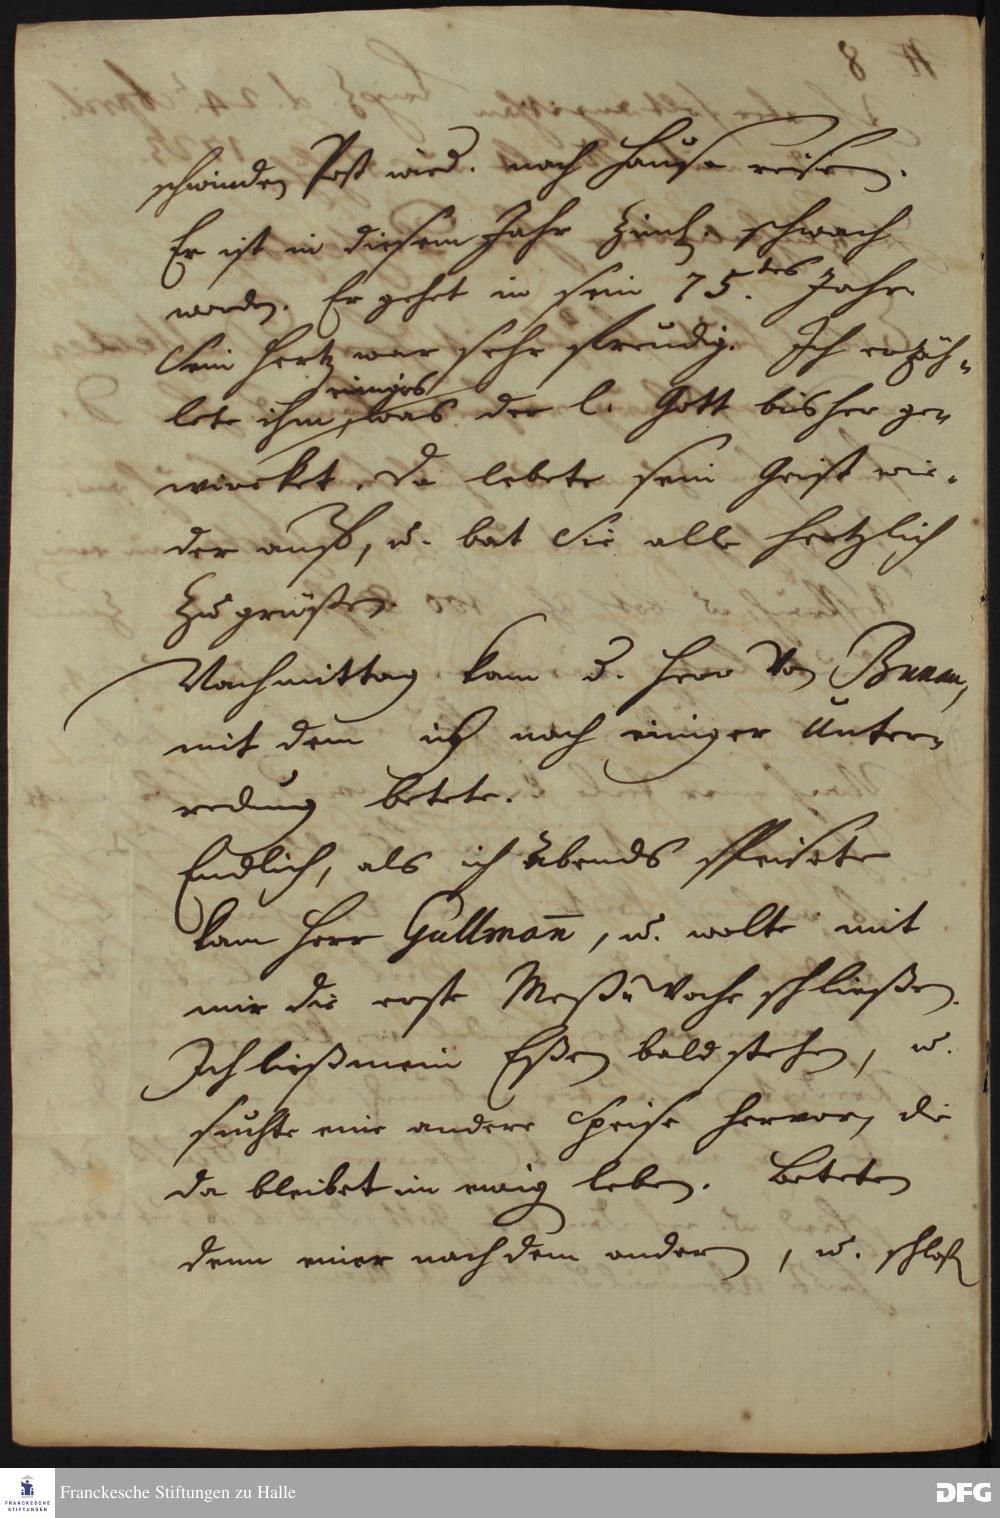 schwinden Post wied. nach Hause reisen.
Er ist in diesem Jahr zieml. schwach
worden. Er gehet in sein 75.tes Jahr
Sein Hertz war sehr freudig. Ich erzäh-
lete ihm einiges, was der l. Gott bisher ge-
wircket. Da lebete sein Geist wie-
der auff, u. bat Sie alle hertzlich
zu grüßen.
Nachmittag kam d. Herr von Bunau,
mit dem ich nach einiger Unter-
redung betete.
Endlich, als ich Abends speisete
kam Herr Gullmañ, u. wolte mit
mir die erste Meß-Woche schließen.
Ich ließ mein Eßen bald stehen, u.
suchte eine andere Speise hervor, die
da bleibet im ewig leben. Beteten
denn einer nach dem andern, u. schloß
Franckesche Stiftungen zu Halle
FRANCKESCHE
STIFTUNGEN
DFG